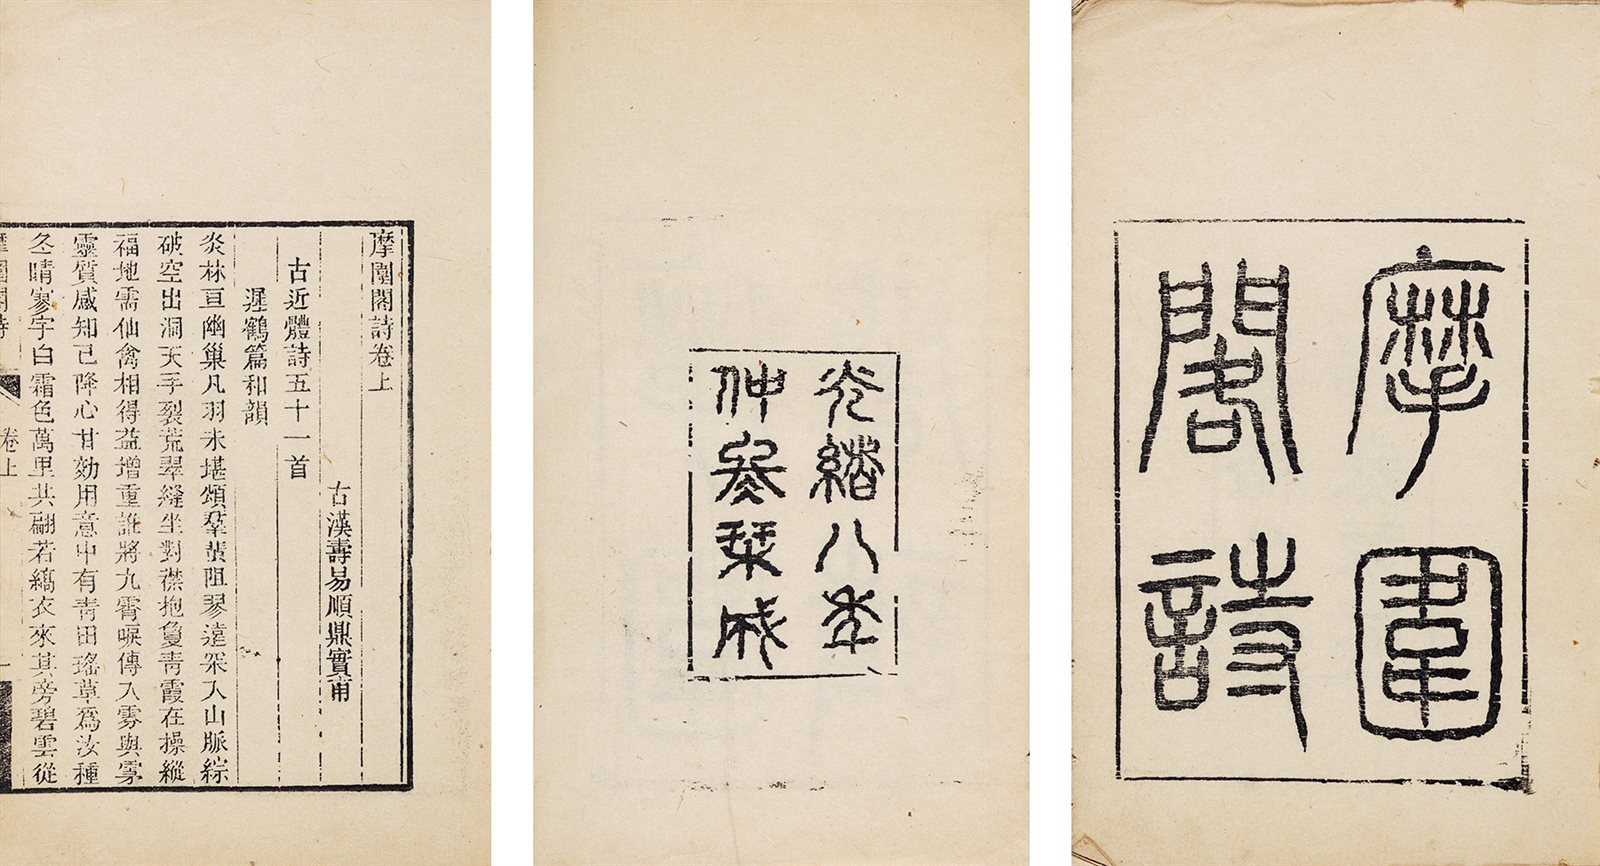 摩圍
閣詩
光緒八年
仲栞成
摩圍閣詩卷上
古漢壽易順鼎實甫
古近體詩五十一首
遲鶴篇和韻
炎林亘幽巢凡羽未堪頌羣蜚阻琴遠深入山脈綜
破空出洞天手裂荒翠縫坐對襟抱敻靑霞在操縱
福地需仙禽相得益增重誰將九霄唳傳入雰與雺
靈質感知己降心甘効用意中有靑田瑤草爲汝種
冬晴寥宇白霜色萬里共翩若縞衣來其旁碧雲從
摩圍閣詩
卷上
一